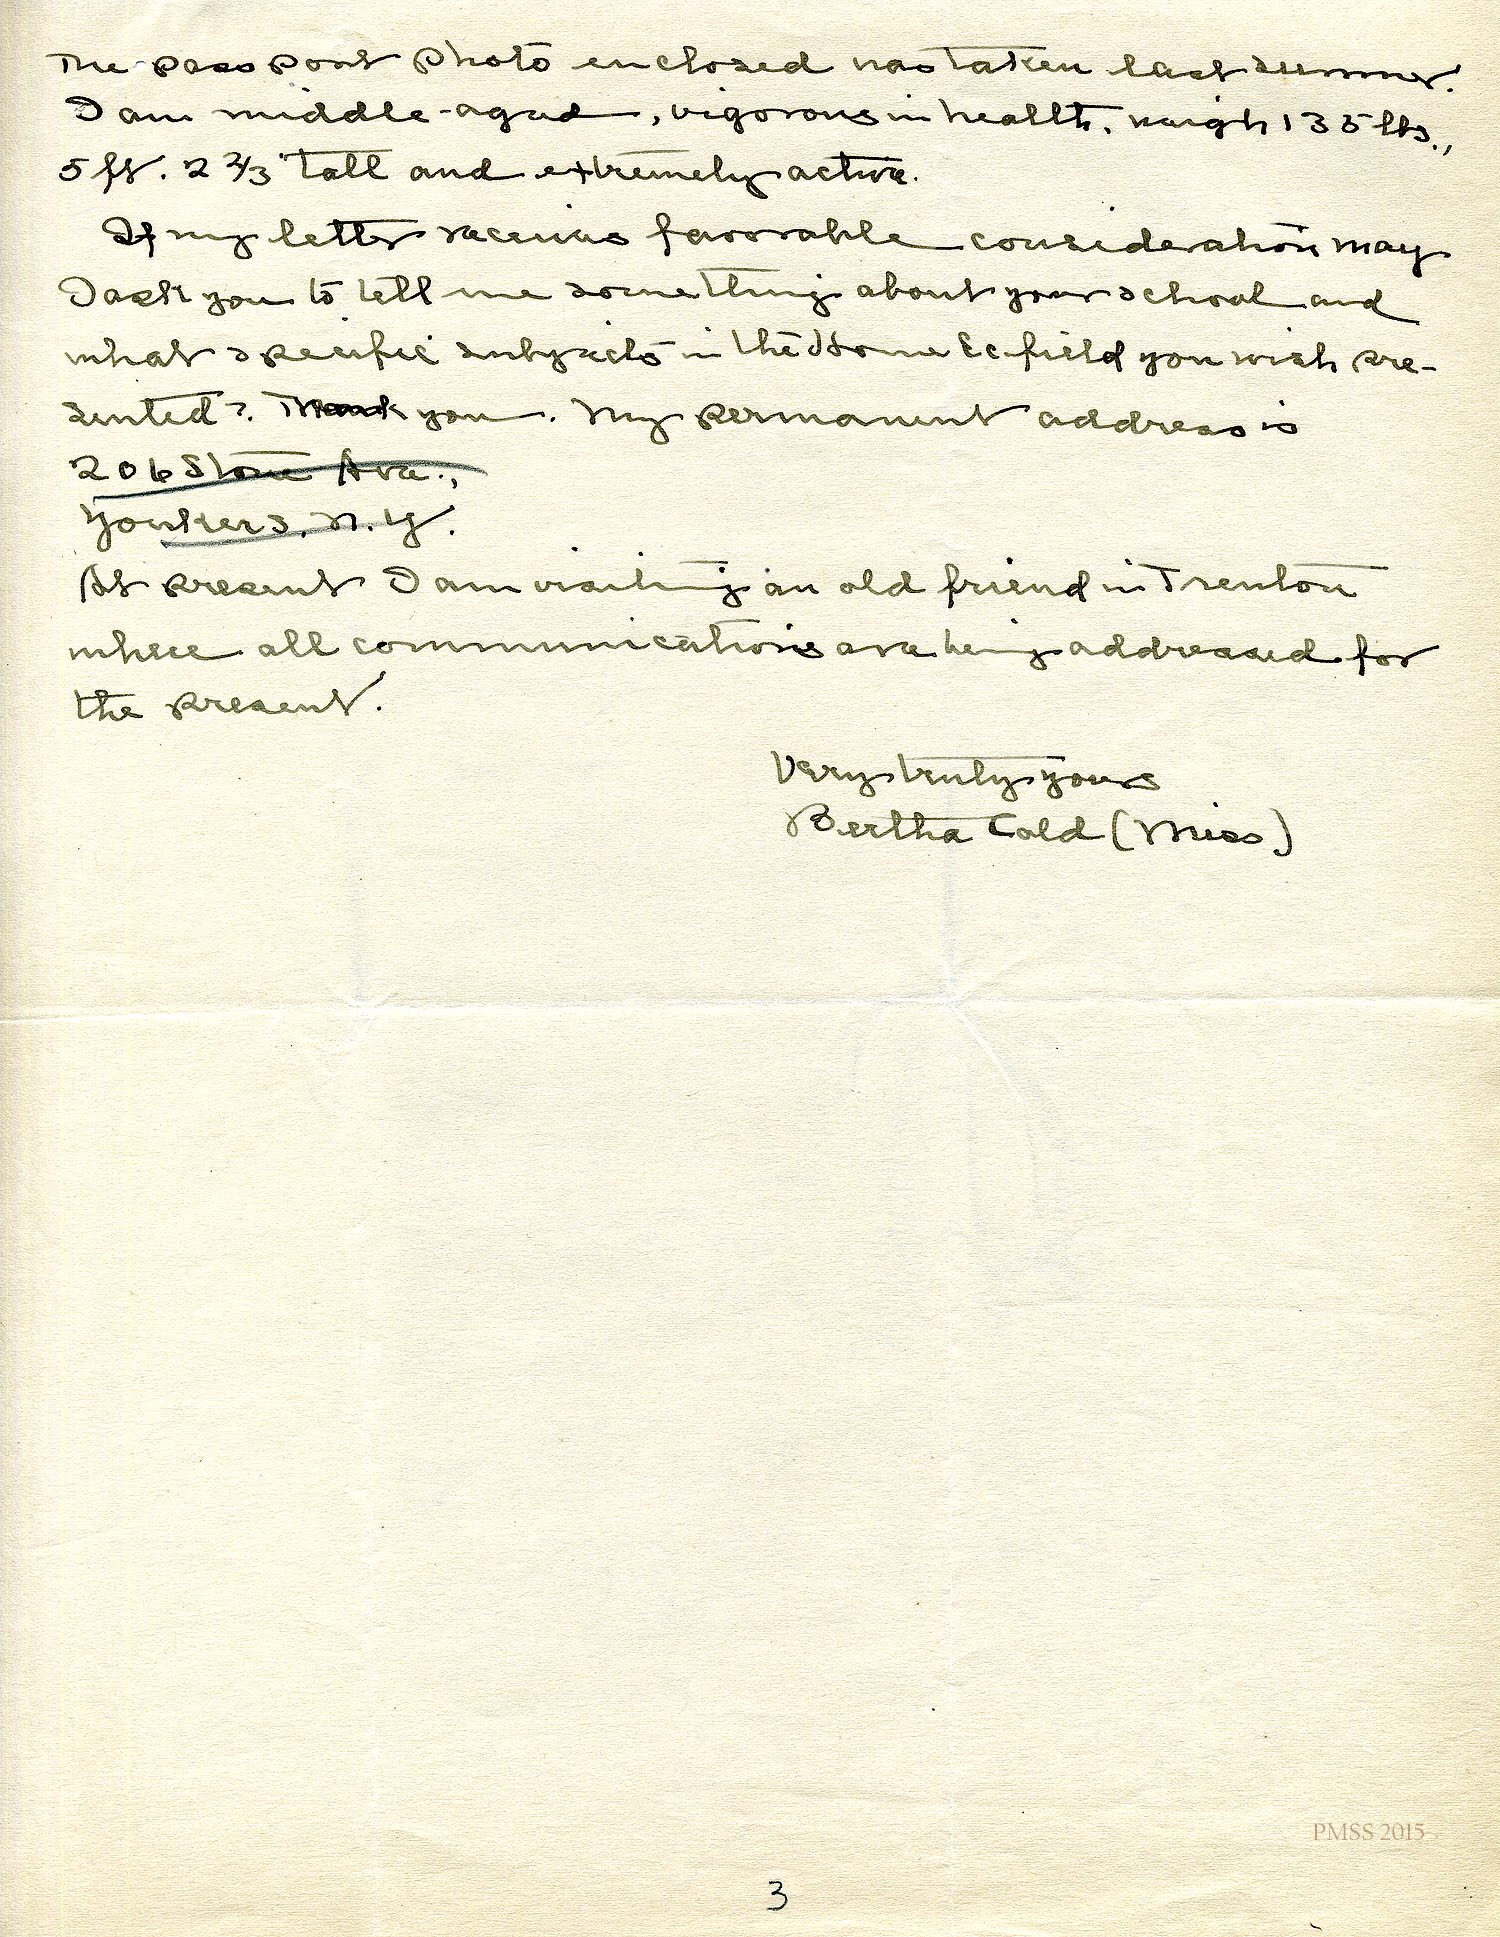 The pass port photo enclosed was taken last summer.
I am middle-aged, vigorous in health, weigh 135 lbs.,
5 ft. 2 2/3" tall and extremely active.
If my letter receives favorable consideration may
I ask you to tell me something about your school and
what specific subjects in the Home Ec field you wish pre-
sented? Thank you. My permanent address is
206 Stone Ave.,
Yonkers, N.Y.
At present I am visiting an old friend in Trenton
where all communications are being addressed for
the present.
Very truly yours
Bertha Cold (Miss)
PMSS 2015
3